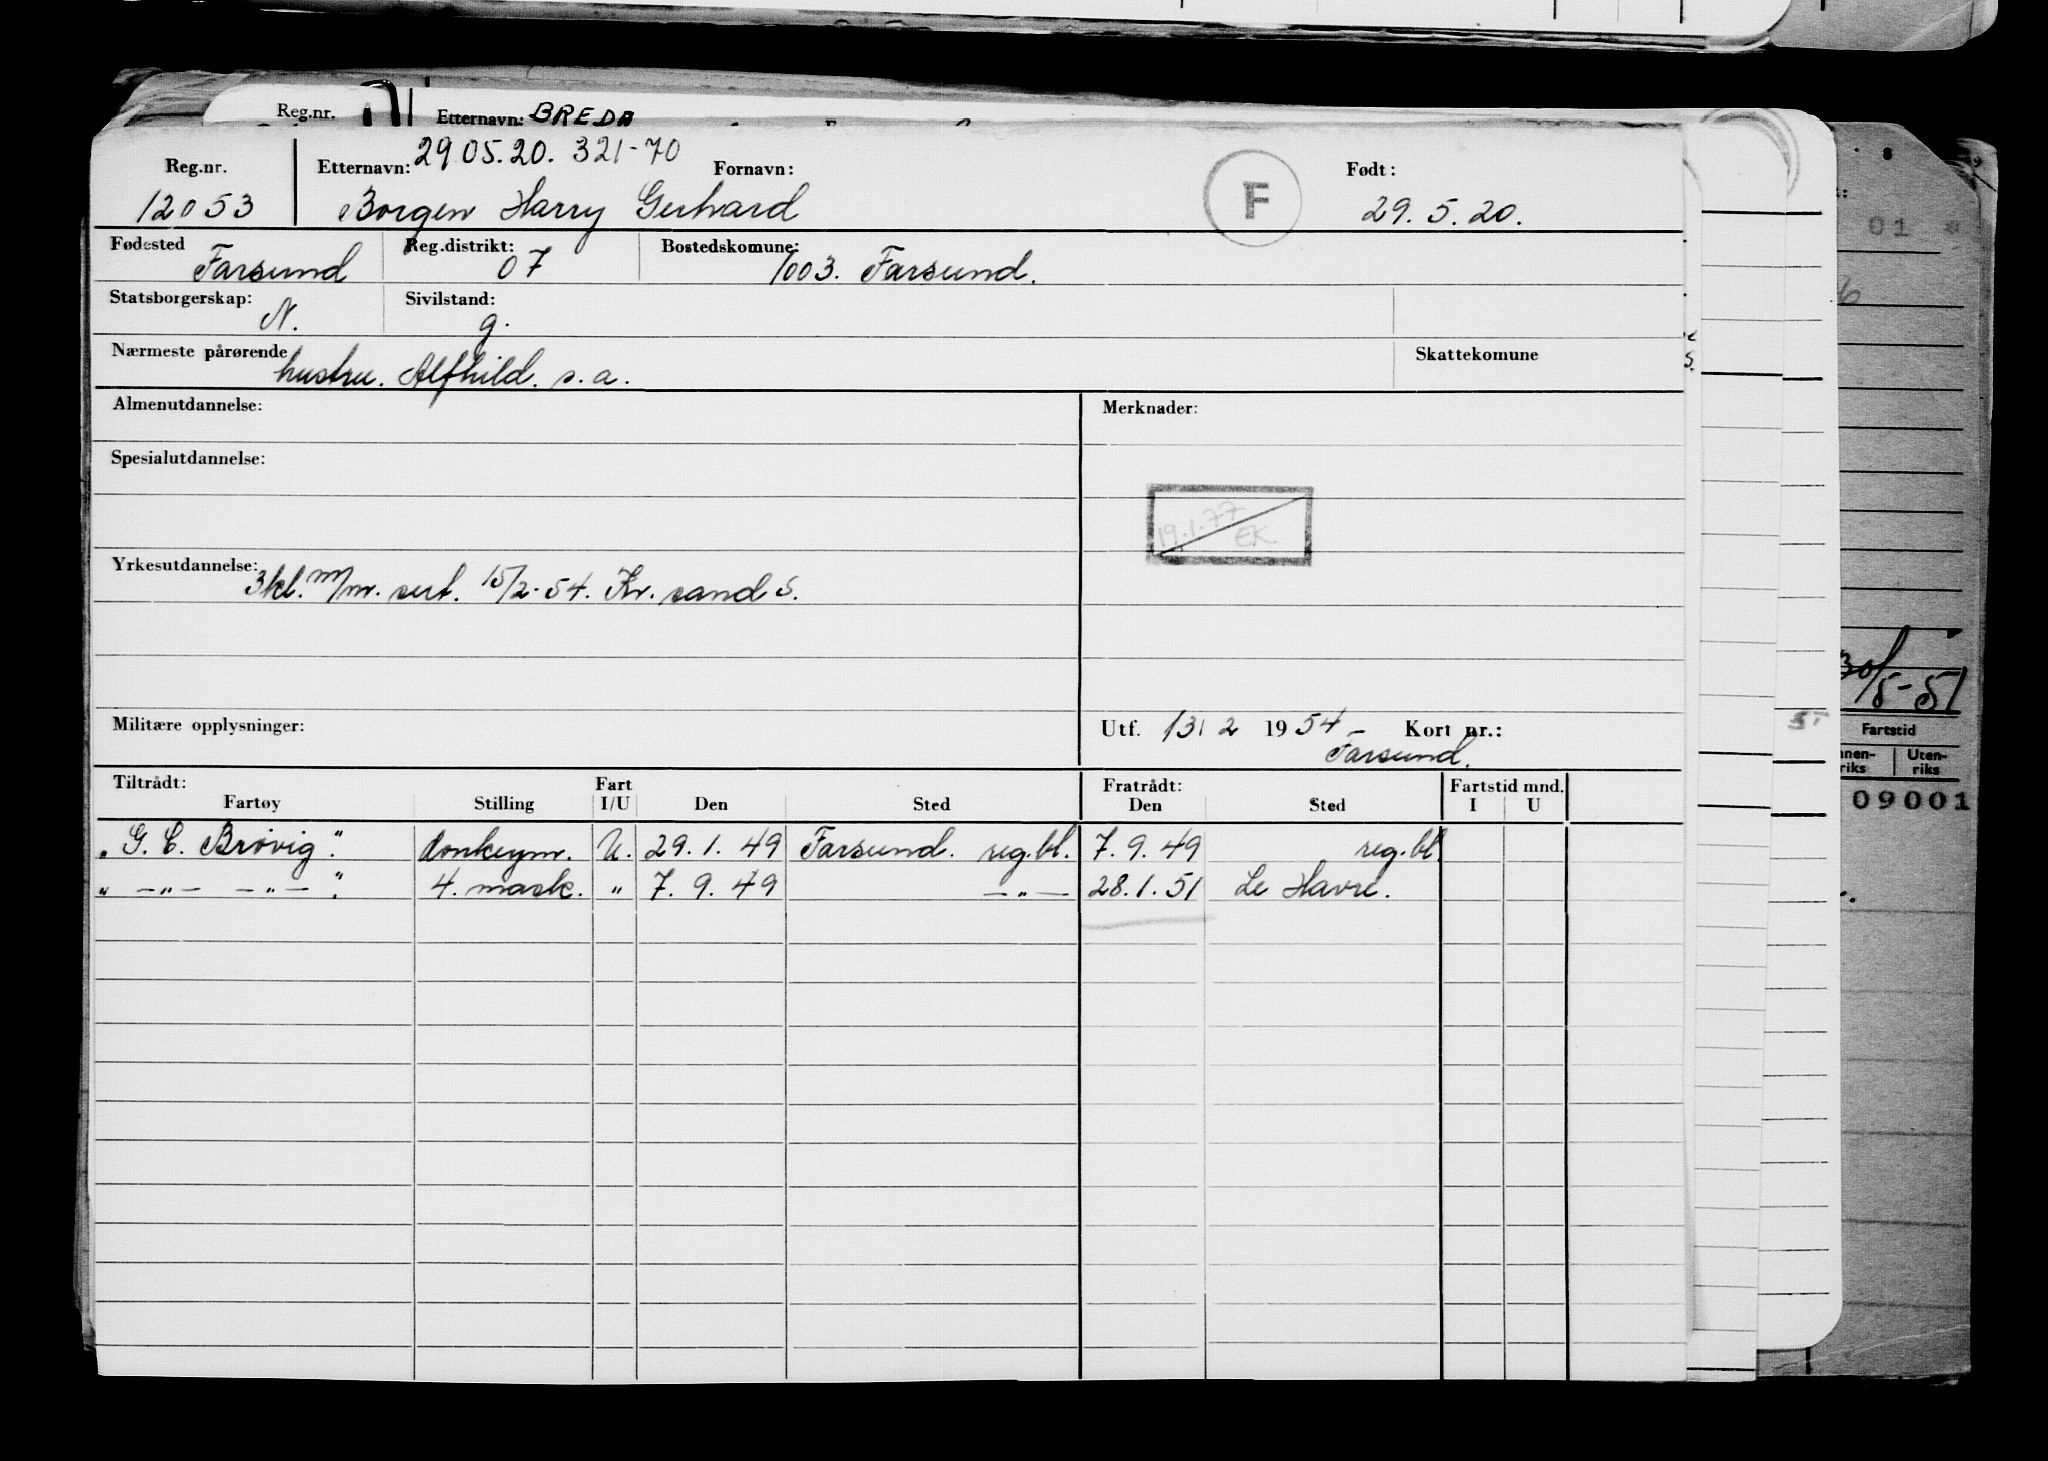 Reg.nr. Etternavn: BREDA
29 05.20. 321-70
Reg.nr. Etternavn: Fornavn: F Født:
12053 Borgen Harry Gerhard 29. 5. 20.
Fødested Reg.distrikt: Bostedskomune:
Farsund 07 1003. Farsund.
Statsborgerskap: Sivilstand:
N. g.
Nærmeste pårørende Skattekomune
hustru. Alfhild. s.a.
Almenutdannelse: Merknader:
Spesialutdannelse:
19.1.77
EK.
Yrkesutdannelse:
3kl. m/m. sert. 15/2-54. Kr. sand S.
Militære opplysninger: Utf. 13/ 2 1954 Kort nr.:
Farsund.
Tiltrådt: Fart Fratrådt: Fartstid mnd.
Fartøy Stilling I/U Den Sted Den Sted I U
„G. C. Brøvig." donkeym. U. 29. 1. 49 Farsund. reg.bl. 7. 9. 49 reg.bl.
" —"— —"— " 4. mask. " 7. 9. 49 —"— 28. 1. 51 Le Havre.
01
30/5-51
Fartstid
Uten-
riks riks
09001